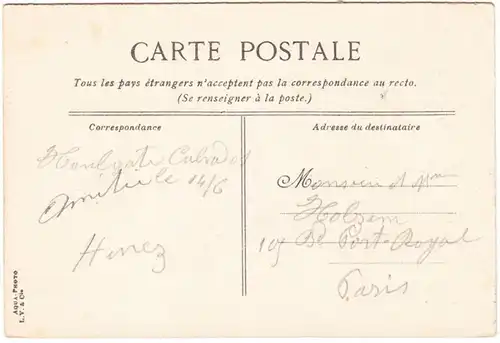 CARTE POSTALE
Tous les pays étrangers n'acceptent pas la correspondance au recto.
(Se renseigner à la poste.)
Correspondance
Adresse du destinataire
Houlgate Calvados
Amitié le 14/6
Monsieur et Mme
Bd Port-Royal
Paris
AQUA-PHOTO
L. V. & Cie